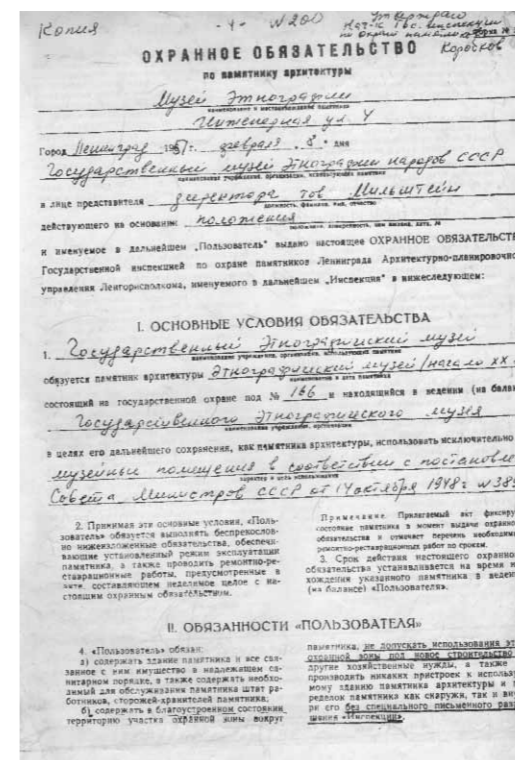 Копия - 4 - N 200 Утверждаю
Нач-к Гос. инспекции
по охране памятников
Коросков
ОХРАННОЕ ОБЯЗАТЕЛЬСТВО
по памятнику архитектуры
Музей Этнографии
наименование и местонахождение памятника
Инженерная ул. 4
Город Ленинград 1951 г. февраля „8“ дня
Государственный музей Этнографии народов СССР
наименование учреждения, организации, использующих памятник
в лице представителя директора тов Мильштейн
должность, фамилия, имя, отчество
действующего на основании положения
положения, доверенность, кем выдана, дата, №
и именуемое в дальнейшем „Пользователь“ выдано настоящее ОХРАННОЕ ОБЯЗАТЕЛЬСТВ
Государственной инспекцией по охране памятников Ленинграда Архитектурно-планировочно
управления Ленгорисполкома, именуемого в дальнейшем „Инспекция“ в нижеследующем:
I. ОСНОВНЫЕ УСЛОВИЯ ОБЯЗАТЕЛЬСТВА
1. Государственный Этнографический музей
наименование учреждения, организации, использующих памятник
обязуется памятник архитектуры Этнографический музей /начало XX
наименование и дата памятника
состоящий на государственной охране под № 166 и находящийся в ведении (на балан
Государственного Этнографического музея
наименование учреждения, организации
в целях его дальнейшего сохранения, как памятника архитектуры, использовать исключительно
музейные помещения в соответствии с постановле
характер и цель использования
Совета Министров СССР от 14 октября 1948 г N 389
2. Принимая эти основные условия, «Поль-
зователь» обязуется выполнять беспрекослов-
но нижеизложенные обязательства, обеспечи-
вающие установленный режим эксплуатации
памятника, а также проводить ремонтно-ре-
ставрационные работы, предусмотренные в
акте, составляющем неделимое целое с на-
стоящим охранным обязательством.
Примечание. Прилагаемый акт фиксиру
состояние памятника в момент выдачи охранно
обязательства и отмечает перечень необходимы
ремонтно-реставрационных работ по срокам.
3. Срок действия настоящего охранно
обязательства устанавливается на время н
хождения указанного памятника в веден
(на балансе) «Пользователя».
II. ОБЯЗАННОСТИ «ПОЛЬЗОВАТЕЛЯ»
4. «Пользователь» обязан:
а) содержать здание памятника и все свя-
занное с ним имущество в надлежащем са-
нитарном порядке, а также содержать необхо-
димый для обслуживания памятника штат ра-
ботников, сторожей-хранителей памятника;
б) содержать в благоустроенном состоянии
территорию участка охранной зоны вокруг
памятника, не допускать использования эт
охранной зоны под новое строительство
другие хозяйственные нужды, а также
производить никаких пристроек к использу
мому зданию памятника архитектуры и
ределок памятника как снаружи, так и вну
ри его без специального письменного раз
шения «Инспекции»,